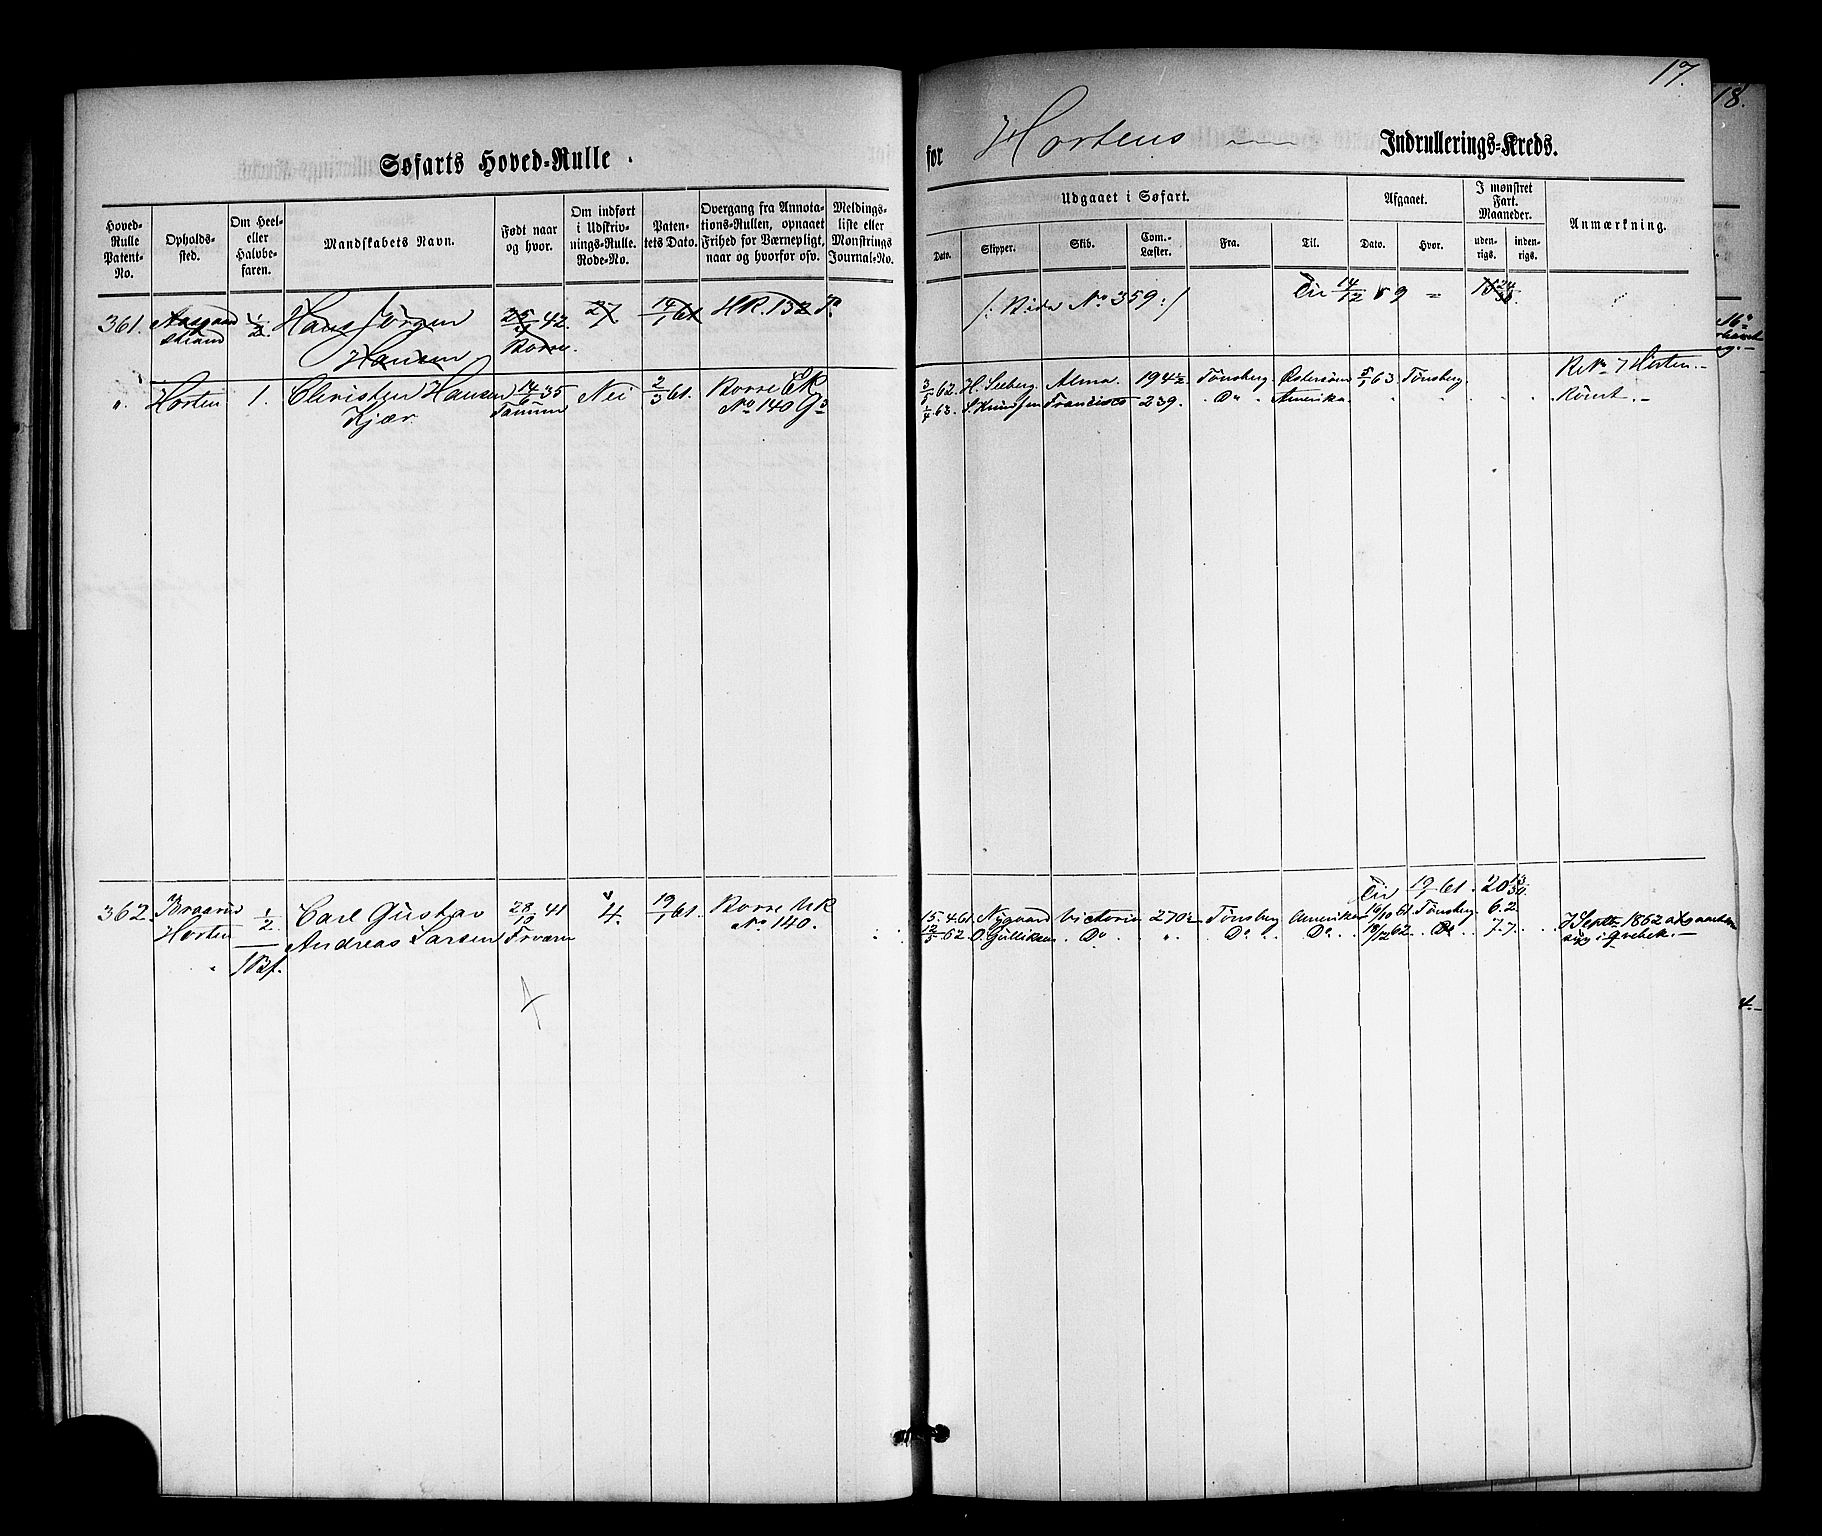 17.
18.
Søfarts Hoved-Rulle
for Hortens Indrullerings-Kreds.
Hoved-Rulle Patent-No.
Opholds-sted.
Om Heel- eller Halvbe-faren.
Mandskabets Navn.
Født naar og hvor.
Om indført i Udskriv-nings-Rulle. Rode-No.
Paten-tets Dato.
Overgang fra Annota-tions-Rullen, opnaaet Frihed for Værnepligt, naar og hvorfor osv.
Meldings-liste eller Mønstrings Journal-No.
Udgaaet i Søfart.
Afgaaet.
I mønstret Fart. Maaneder.
Anmærkning.
Dato.
Skipper.
Skib.
Com.-Læster.
Fra.
Til.
Dato.
Hvor.
uden-rigs.
inden-rigs.
361. Aasgaard strand 1/2 Hans Jørgen Hansen 42. Borre. 27 14/1 61 HR. 132
/: Vide No 359 :/ 14/12 59 =
" Horten 1. Christen Hansen Kjær 14/6 35 Nei 2/3 61. Borre No 140
3/5 62. H. Seeberg. Alma. 194½ Tønsberg Østersøen 5/1 63. Tønsberg. R No 7 Horten.
1/4 63. S. Knudsen Francisco 239. Do Amerika. Rømt.
362. Horten 1/2 Carl Gustav Andreas Larsen 28/10 41 19/1 61. Borre No 140.
1 Bf.
19/1 61. 20 13/30
15. 4 61. Nygaard Victoria 270 Tønsberg Amerika 16/10 61. Tønsberg 6. 2
12/5 62 O. Gulliksen Do " Do Do 18/12 62. Do 7. 7. 7 Septbr 1862
4.